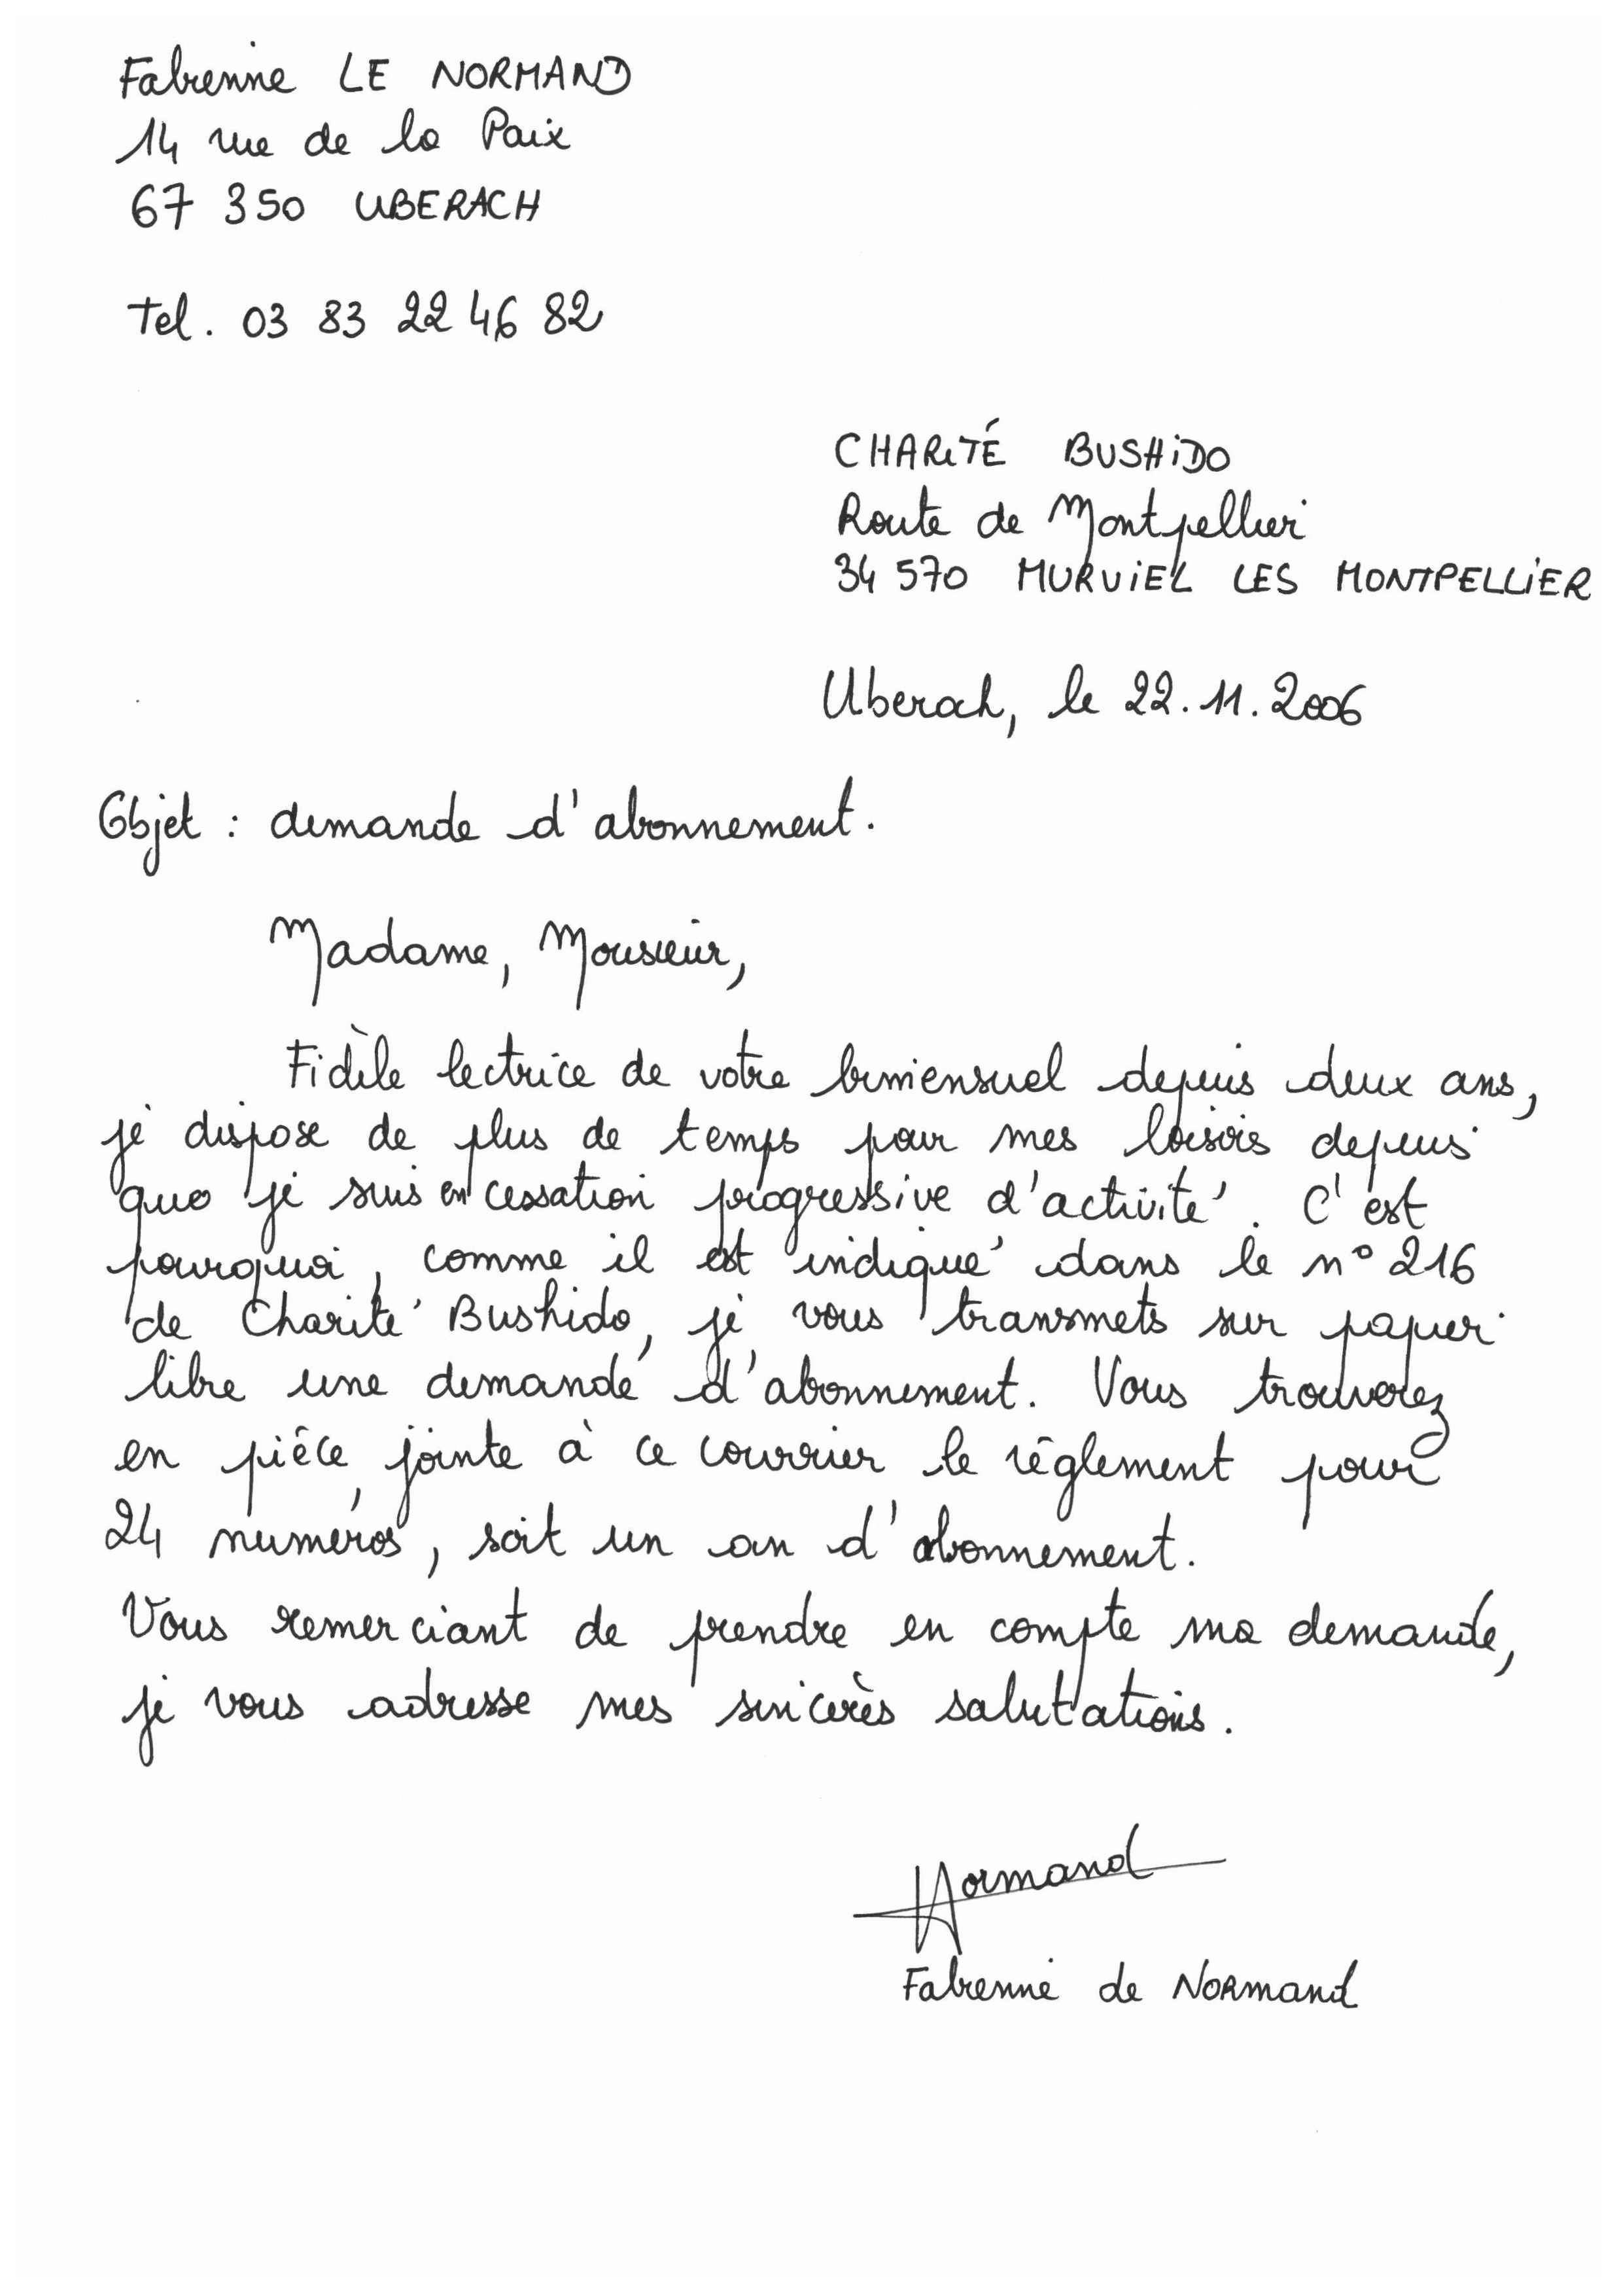 Fabienne LE NORMAND
14 rue de la Paix
67 350 UBERACH
Tel. 03 83 22 46 82
CHARITÉ BUSHIDO
Route de Montpellier
34 570 MURVIEL LES MONTPELLIER
Uberach, le 22.11.2006
Objet : demande d'abonnement.
Madame, Monsieur,
Fidèle lectrice de votre bimensuel depuis deux ans,
je dispose de plus de temps pour mes loisirs depuis
que je suis en cessation progressive d'activité. C'est
pourquoi, comme il est indiqué dans le n° 216
de Charité Bushido, je vous transmets sur papier
libre une demande d'abonnement. Vous trouverez
en pièce jointe à ce courrier le règlement pour
24 numéros, soit un an d'abonnement.
Vous remerciant de prendre en compte ma demande,
je vous adresse mes sincères salutations.
Normand
Fabienne de Normand